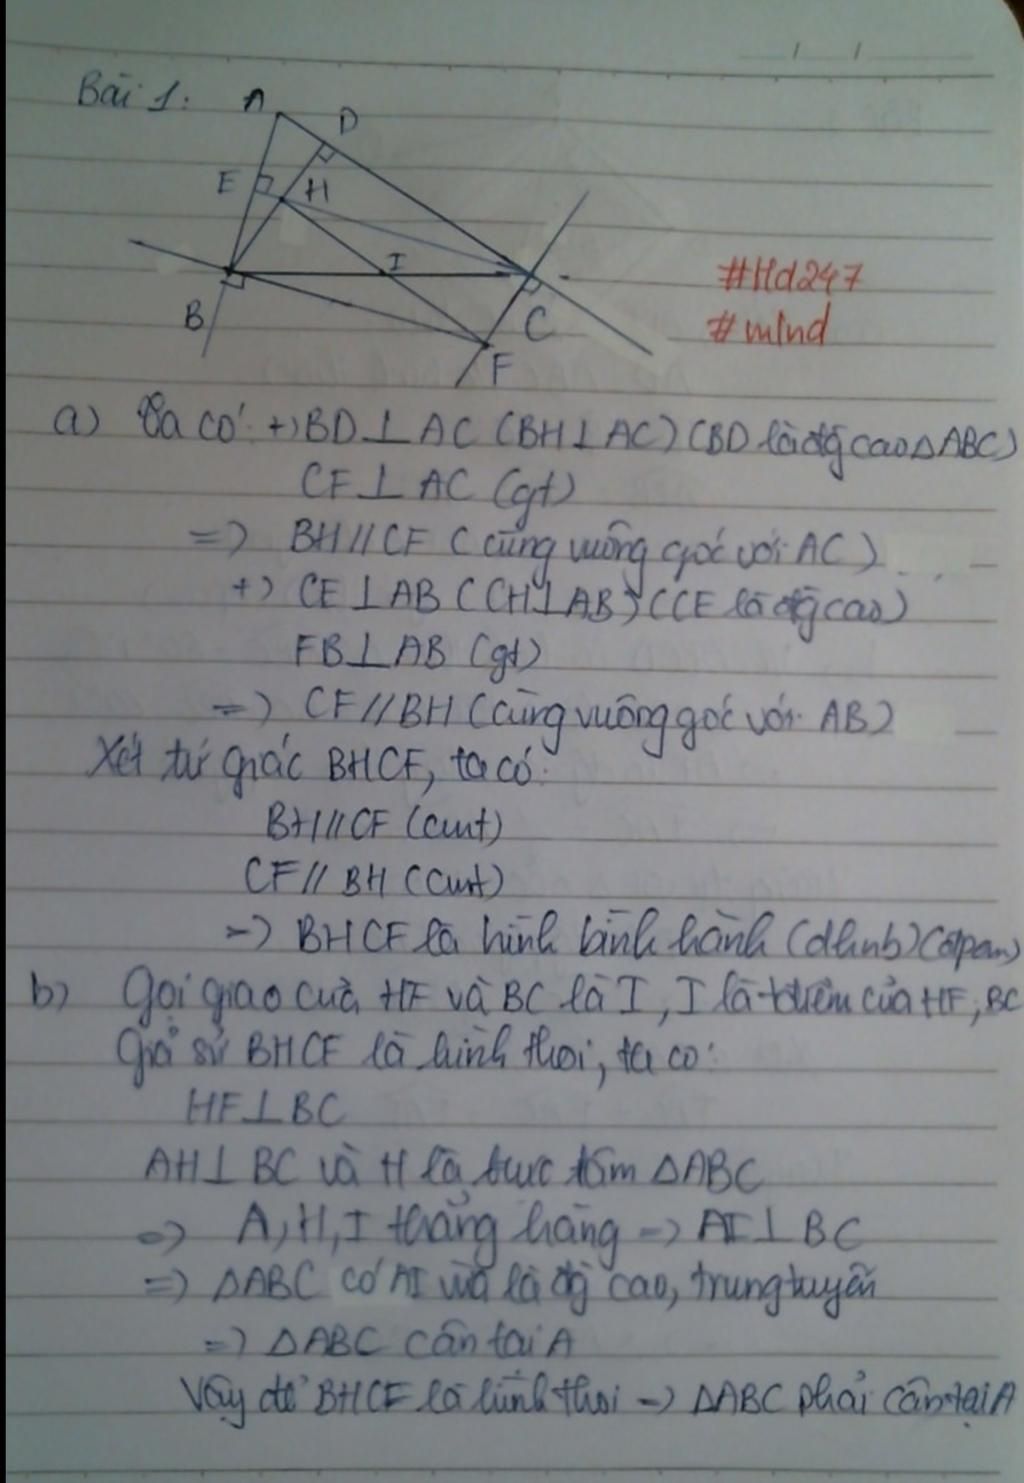 Bài 1:
A
D
E
H
I
B
C
F
#Hd247
#mind
a) Ta có: +) BD ⊥ AC (BH ⊥ AC) (BD là đg cao ΔABC)
CF ⊥ AC (gt)
=> BH // CF (cùng vuông góc với AC)
+) CE ⊥ AB (CH ⊥ AB) (CE là đg cao)
FB ⊥ AB (gt)
=> CF // BH (cùng vuông góc với AB)
Xét tứ giác BHCF, ta có:
BH // CF (cmt)
CF // BH (cmt)
=> BHCF là hình bình hành (dhnb) (đpcm)
b) Gọi giao của HF và BC là I, I là t.điểm của HF, BC
Giả sử BHCF là hình thoi, ta có:
HF ⊥ BC
AH ⊥ BC và H là trực tâm ΔABC
=> A, H, I thẳng hàng => AI ⊥ BC
=> ΔABC có AI vừa là đg cao, trung tuyến
=> ΔABC cân tại A
Vậy để BHCF là hình thoi => ΔABC phải cân tại A